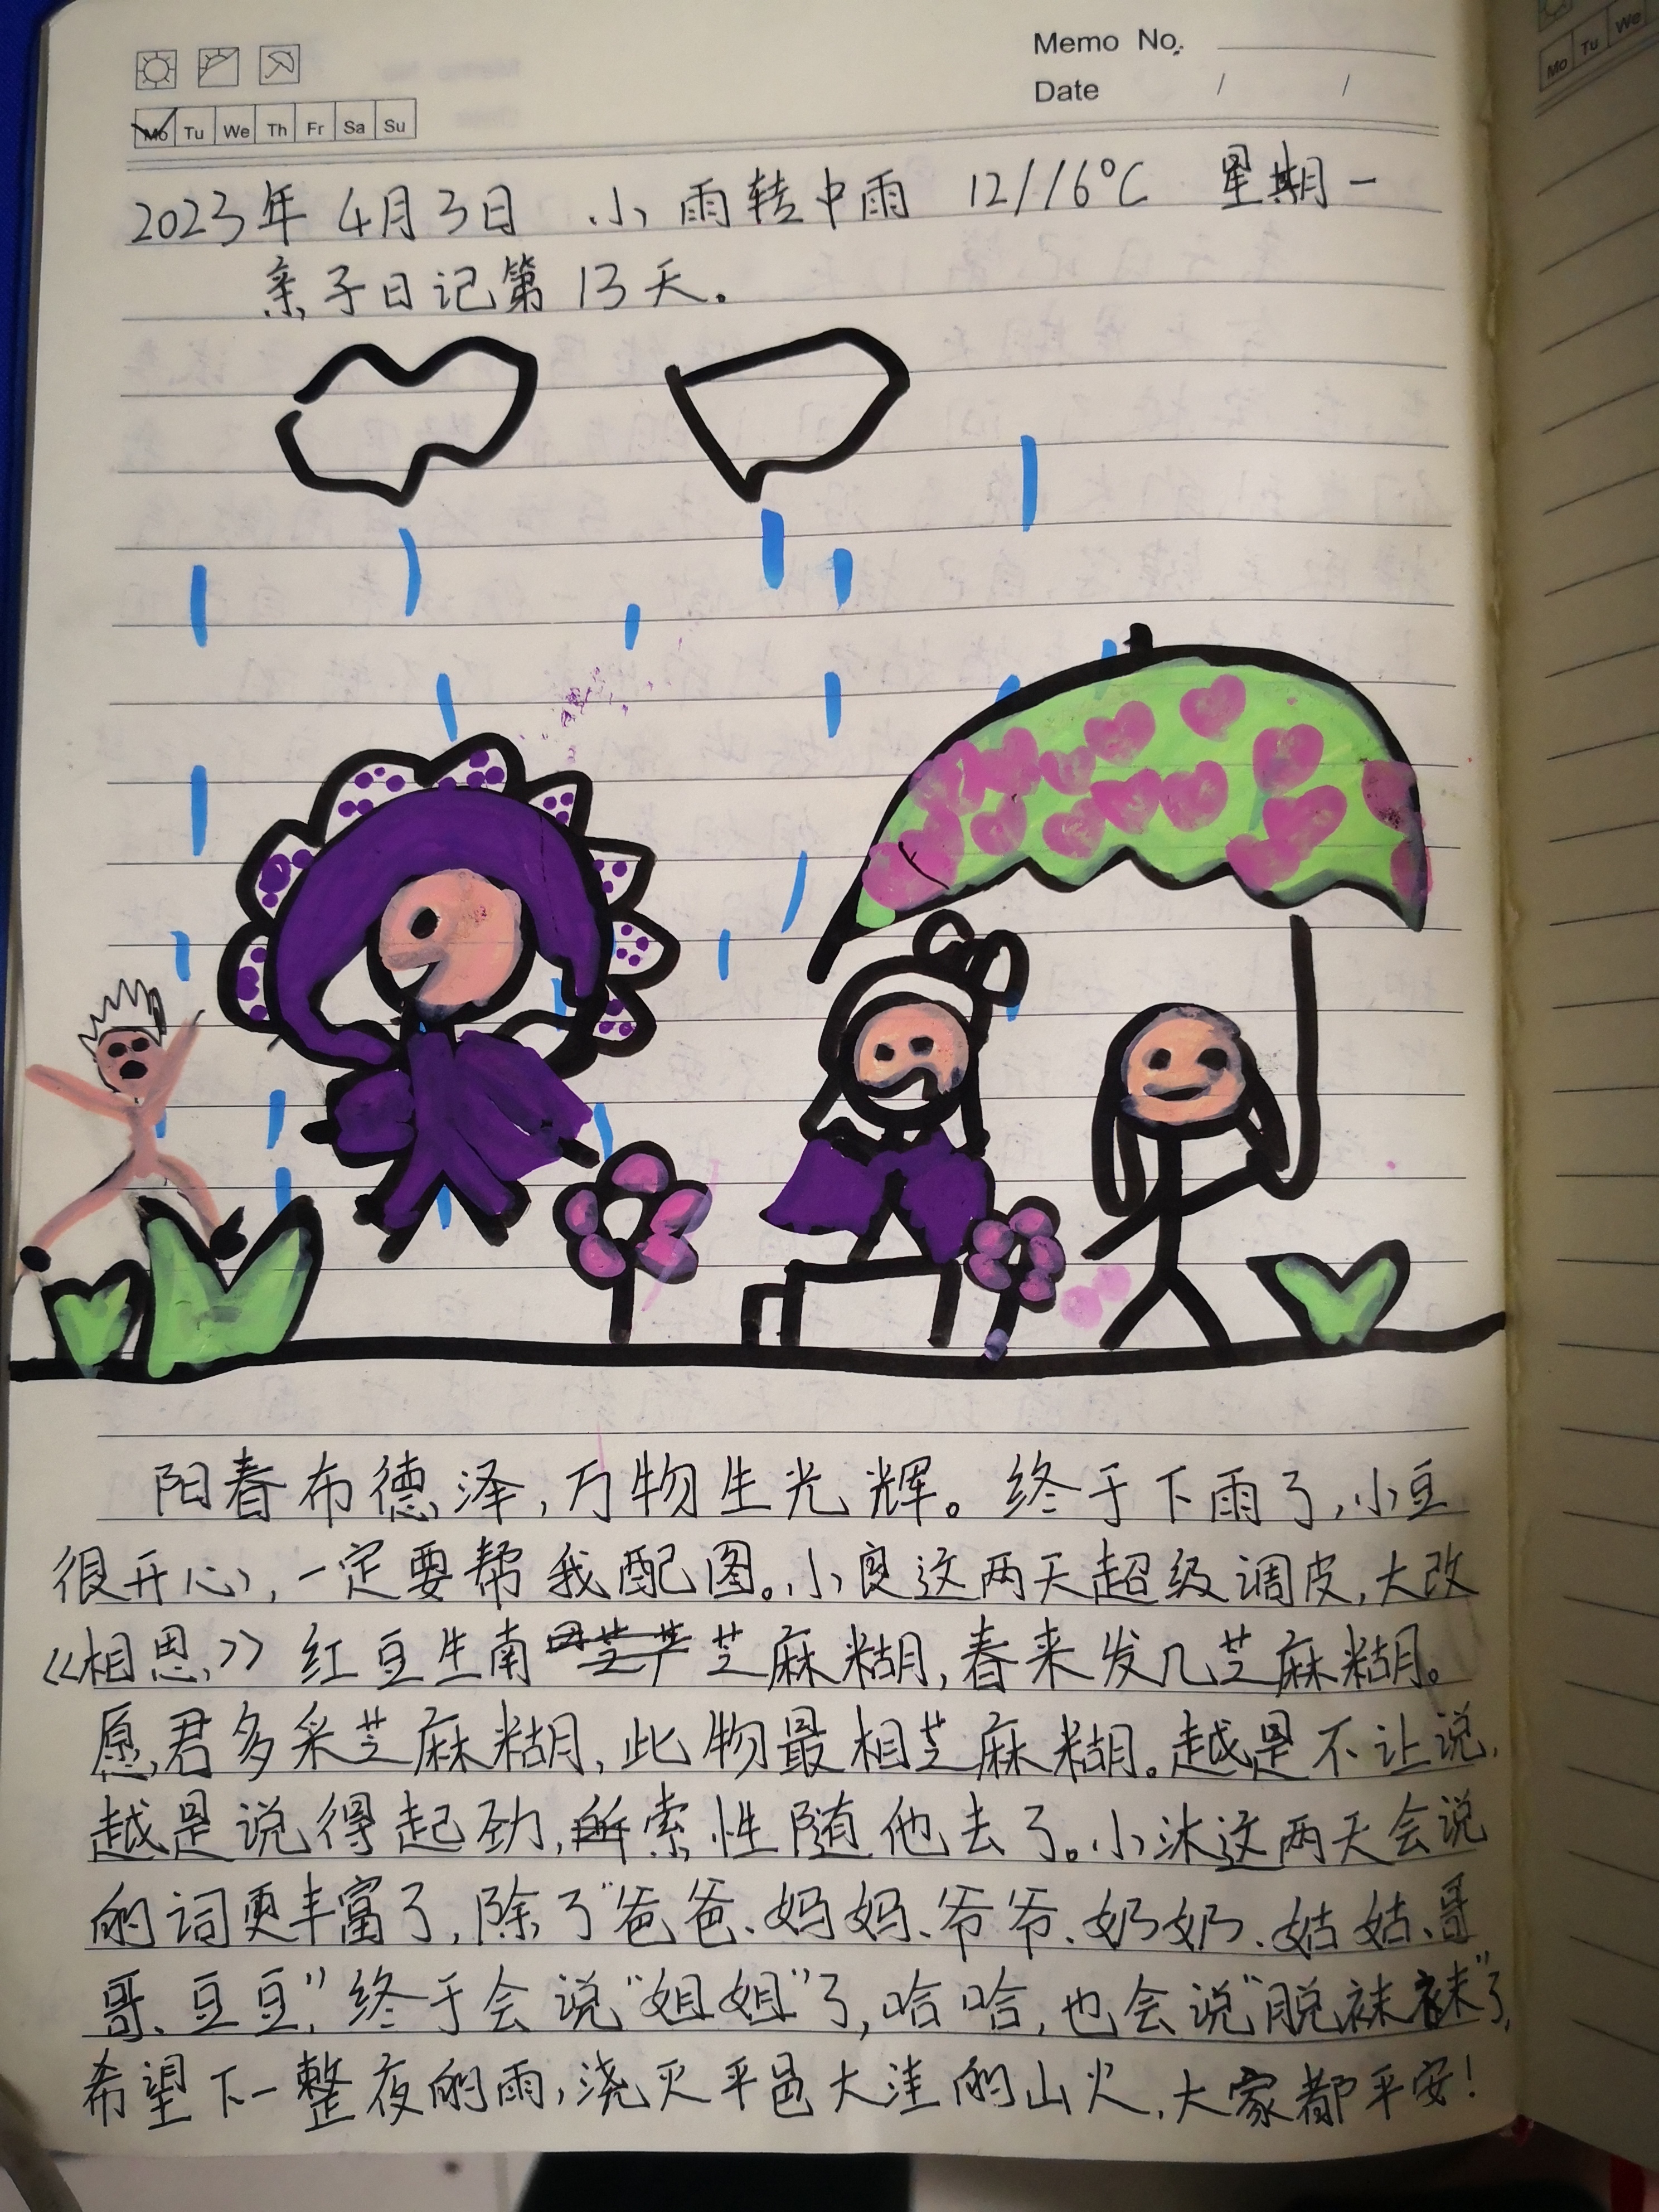 Memo No.
Date / /
Mo Tu We Th Fr Sa Su
Mo Tu We
2023年 4月3日 小雨转中雨 12/16℃ 星期一
亲子日记第13天。
阳春布德泽,万物生光辉。终于下雨了,小豆
很开心,一定要帮我配图。小良这两天超级调皮,大改
《相思》红豆生南芝麻糊,春来发几芝麻糊。
愿君多采芝麻糊,此物最相芝麻糊。越是不让说,
越是说得起劲,索性随他去了。小沐这两天会说
的词更丰富了,除了“爸爸、妈妈、爷爷、奶奶、姑姑、哥
哥、豆豆”,终于会说“姐姐”了,哈哈,也会说“脱袜袜”了,
希望下一整夜的雨,浇灭平邑大洼的山火,大家都平安!